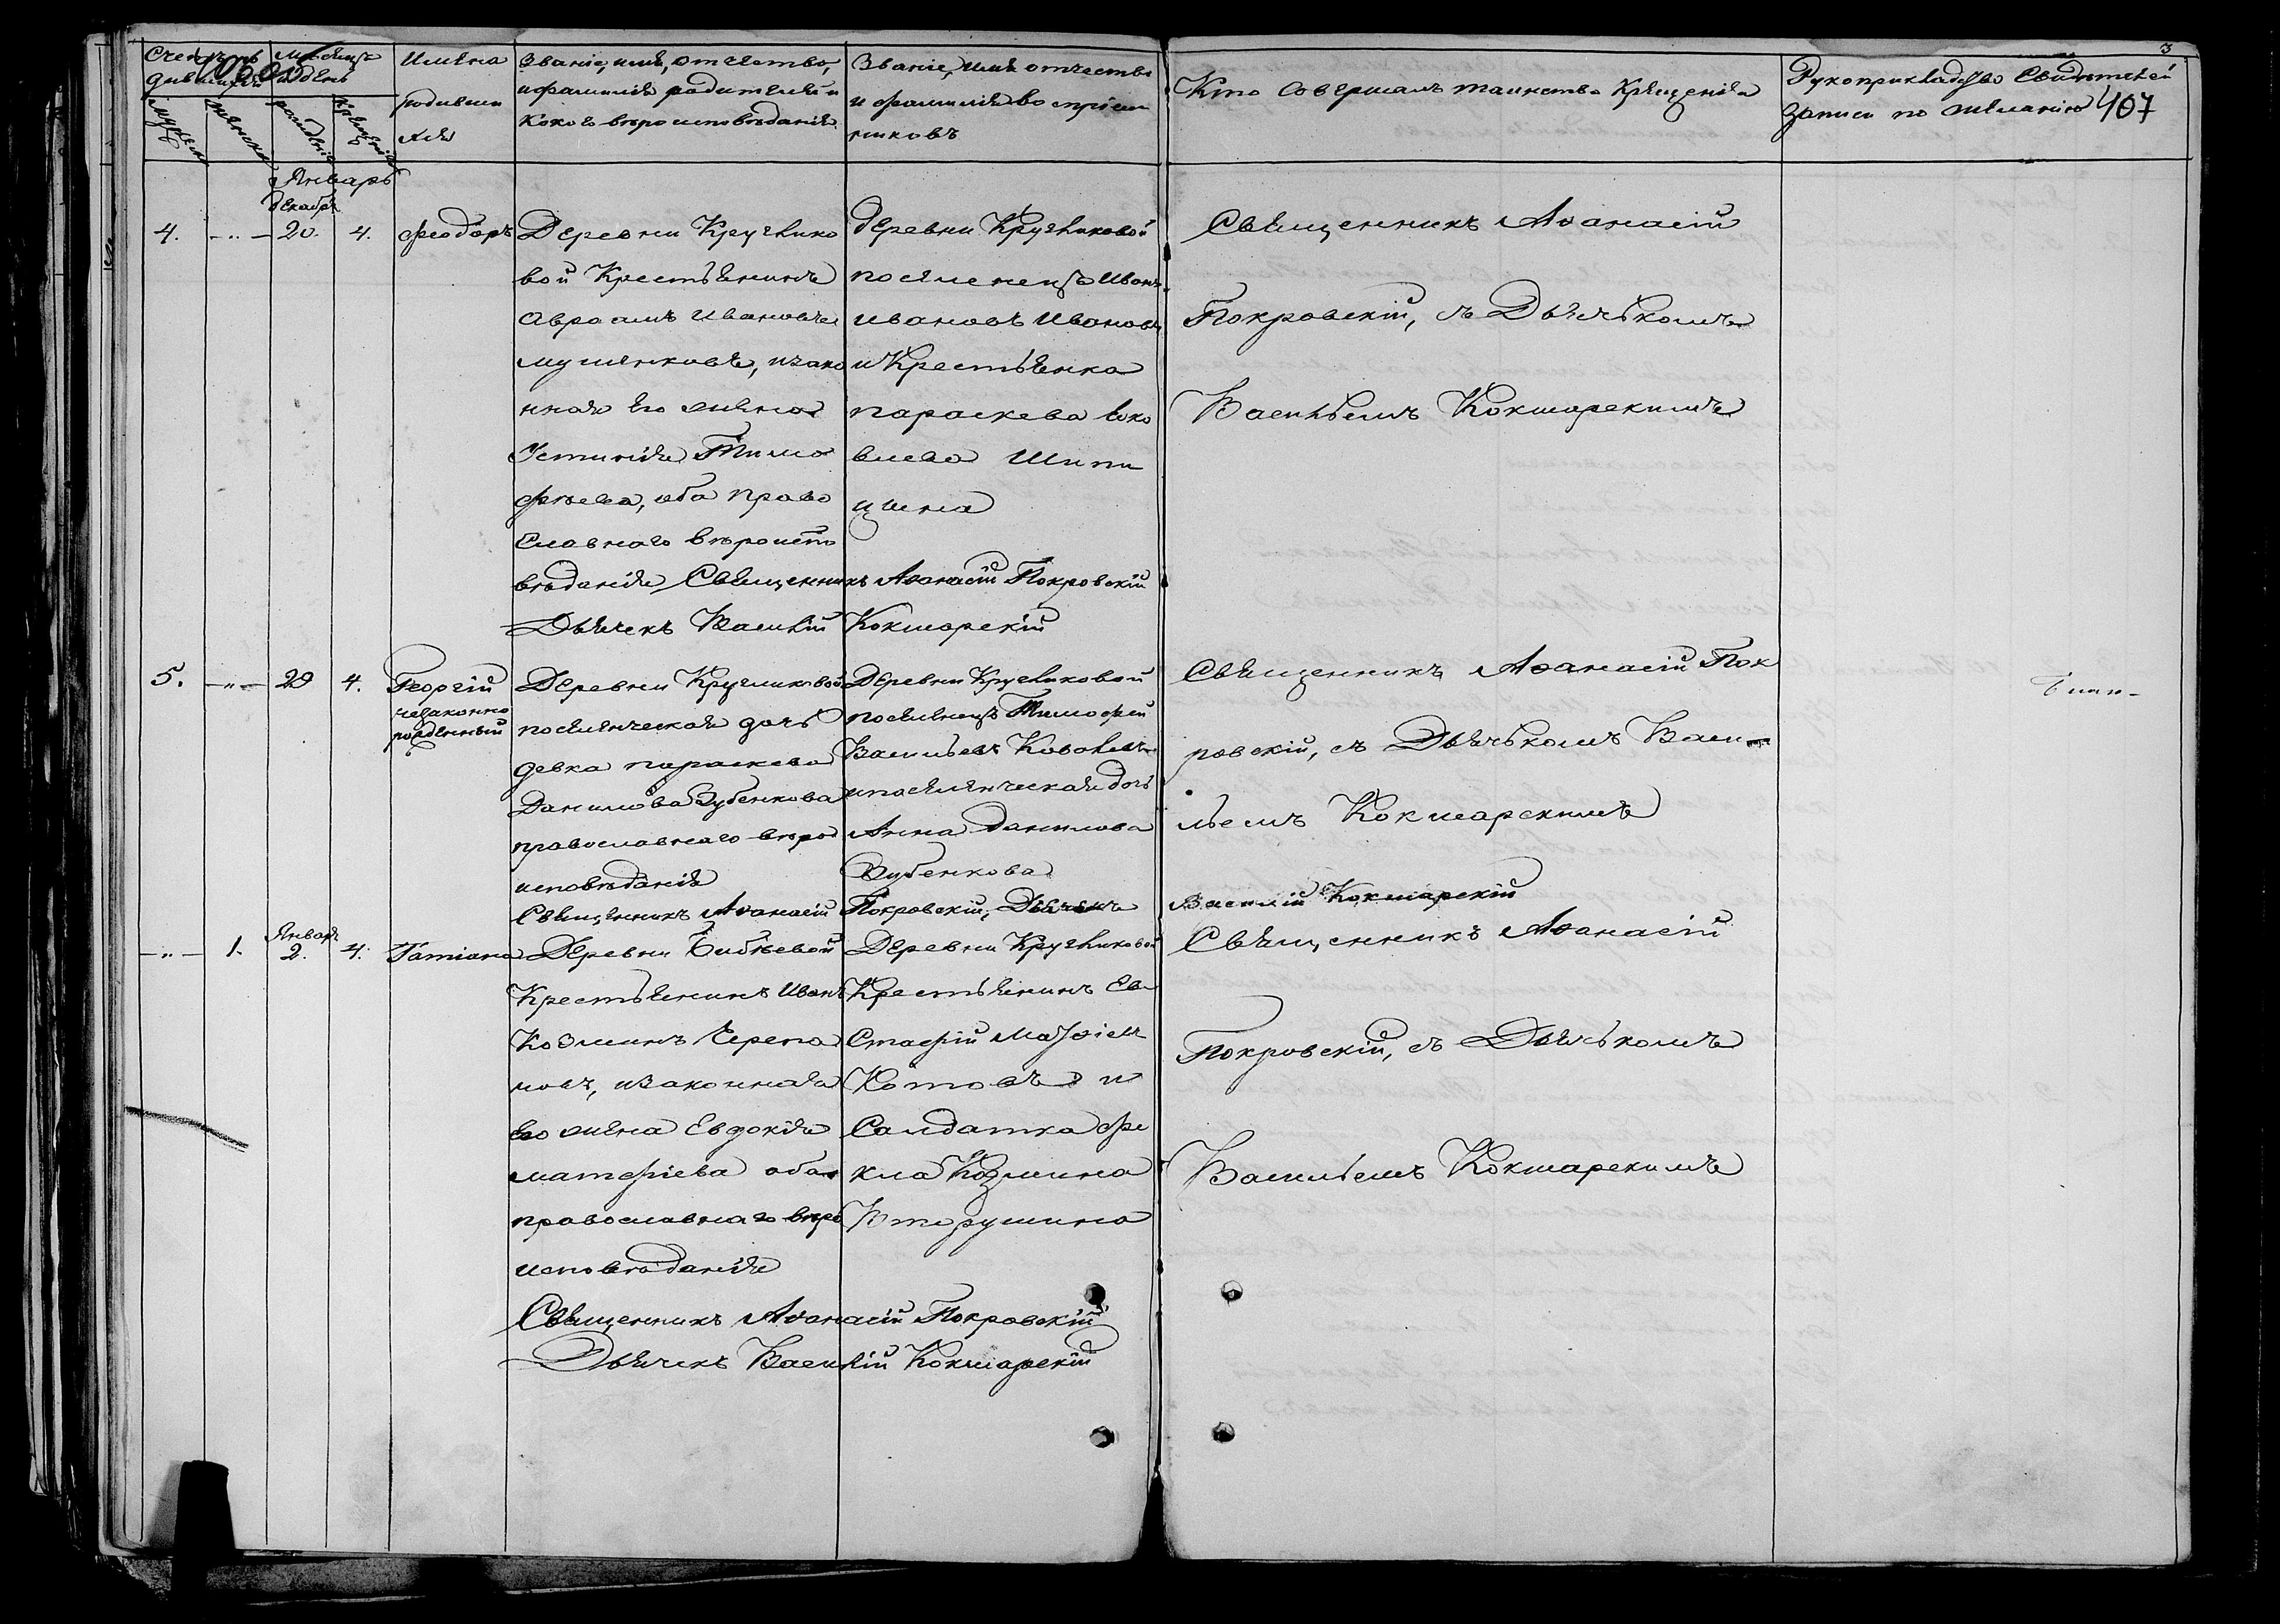 Счетъ родившихся
Мѣсяцъ и день
Имена родившихся
Званіе, имя, отчество,
и фамилія родителей и
какого вѣроисповѣданія
Званіе, имя отчество
и фамилія воспріем
никовъ
Кто совершалъ таинство крещенія
Рукоприкладство Свидѣтелей
записи по желанію
407
3
мужеска
женска
рожденія
крещенія
Январь
декабря
4.
20.
4.
Феодоръ
Деревни Кругляко
вой Крестьянинъ
Авраамъ Ивановъ
, изако
нная Его жена
Устинія Тимо
фѣева, оба право
славнаго вѣроиспо
вѣданія Священникъ Аѳанасій Покровскій
Дьячекъ Василій Кокшарскій
деревни Кругликовой
поселенецъ Иванъ
Ивановъ Ивановъ
и Крестьянка
параскева Іако
влева Шипи
цина
Священникъ Аѳанасій
Покровскій, съ Дьячькомъ
Васильемъ Кокшарскимъ
5.
29
4.
Георгій
незаконно
рожденный
Деревни Кругликовой
поселенческая дочь
девка параскева
Данилова Зубенкова
православнаго вѣро
исповѣданія
Священникъ Аѳанасій Покровскій, Дьячекъ Василій Кокшарскій
Деревни Кругликовой
поселенецъ Тимофей
Васильевъ Ковалевъ
и поселенческая дочь
Анна Данилова
Зубенкова
Священникъ Аѳанасій Пок
ровскій, съ Дьячькомъ Васи
льемъ Кокшарскимъ
1.
Январ
2.
4.
Татіана
Деревни Бибѣевой
Крестьянинъ Иванъ
Козминъ Черепа
новъ, изаконная
Его жена Евдокія
матефіева оба
православнаго вѣро
исповѣданія
Священникъ Аѳанасій Покровскій
Дьячекъ Василій Кокшарскій
Деревни Кругликовой
Крестьянинъ Ев
стафій
Котовъ и
Салдатка Фе
кла Козмина
Вторушина
Священникъ Аѳанасій
Покровскій, съ Дьячькомъ
Васильемъ Кокшарскимъ